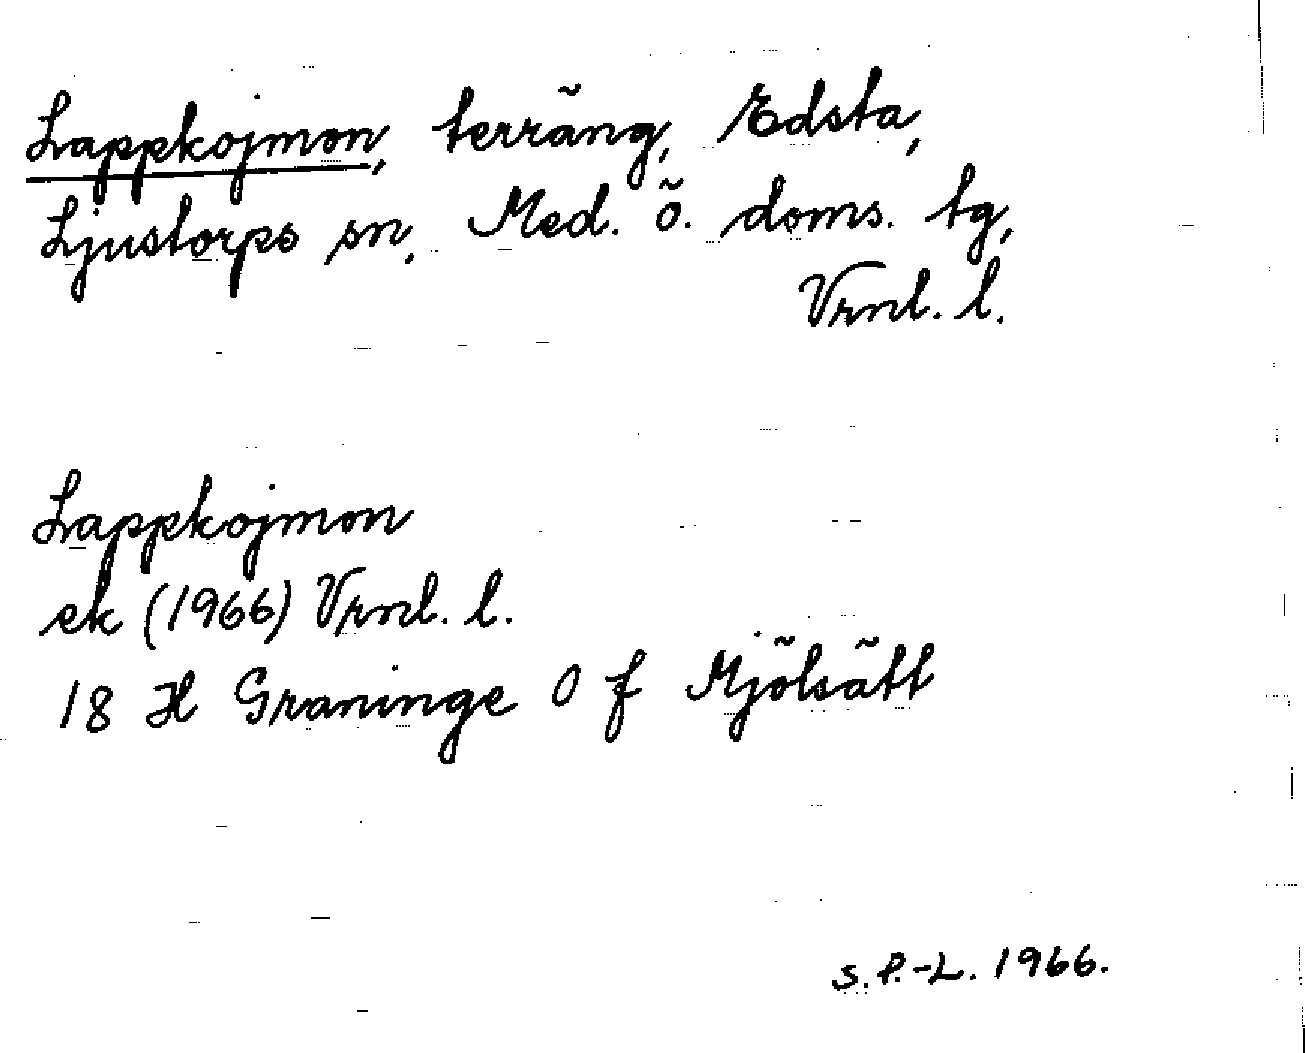 Lappkojmon, terräng, Edsta,
Ljustorps sn, Med. ö. doms. tg,
Vrnl. l.
Lappkojmon
ek (1966) Vrnl. l.
18 H Graninge O f Mjölsätt
S. P.-L. 1966.